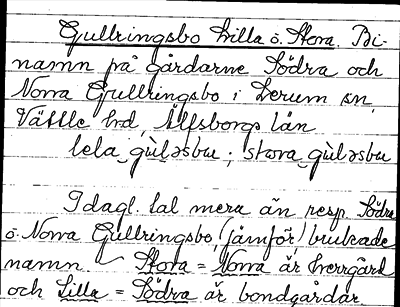 Gullringsbo Lilla o. Stora. Bi-
namn på gårdarne Södra och
Norra Gullringsbo i Lerum sn,
Vättle hd, Älfsborgs län
lela gùləsbu; stora gùləsbu
I dagl. tal mera än resp. Södra
o. Norra Gullringsbo, (jämför) brukade
namn. Stora = Norra är herrgård
och Lilla = Södra är bondgårdar